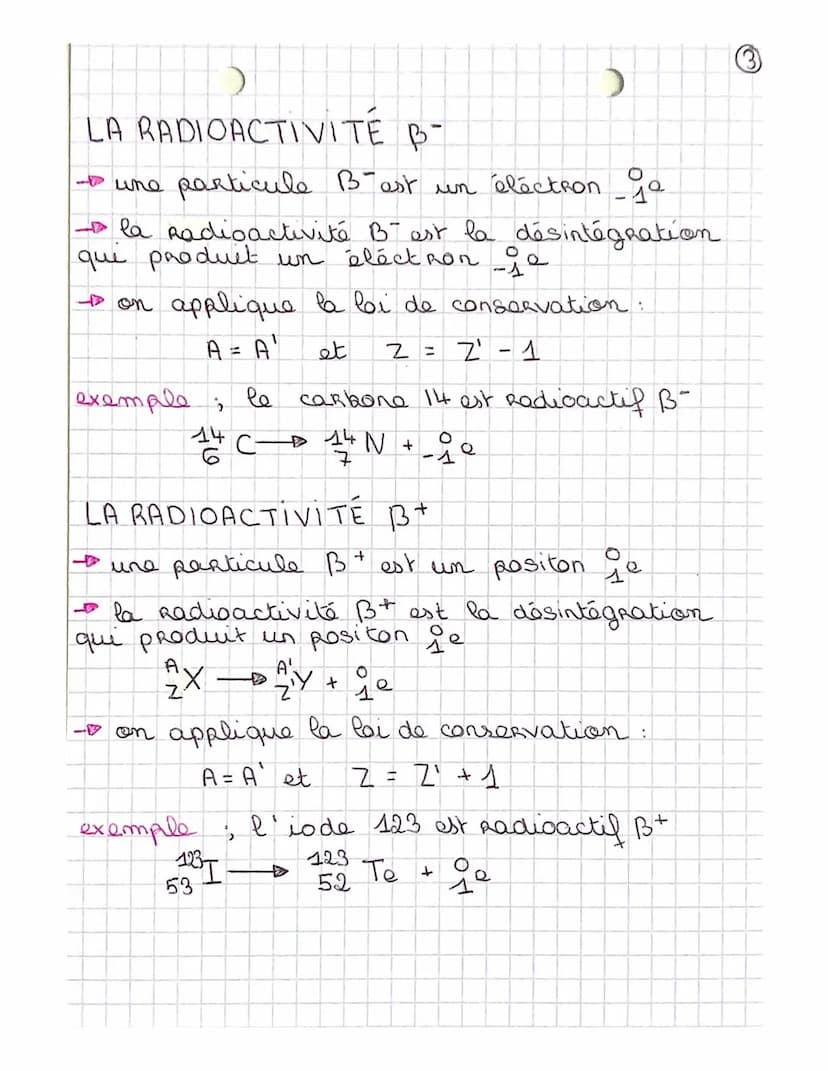 ③
LA RADIOACTIVITÉ β⁻
→ une particule β⁻ est un éléctron ⁰₋₁e
→ la radioactivité β⁻ est la désintégration
qui produit un éléctron ⁰₋₁e
→ on applique la loi de conservation :
A = A' et Z = Z' - 1
exemple ; le carbone 14 est radioactif β⁻
¹⁴₆C → ¹⁴₇N + ⁰₋₁e
LA RADIOACTIVITÉ β⁺
→ une particule β⁺ est un positon ⁰₁e
→ la radioactivité β⁺ est la désintégration
qui produit un positon ⁰₁e
ᴬ_Z X → ᴬ'_Z' Y + ⁰₁e
→ on applique la loi de conservation :
A = A' et Z = Z' + 1
exemple ; l'iode 123 est radioactif β⁺
¹²³₅₃I → ¹²³₅₂Te + ⁰₁e